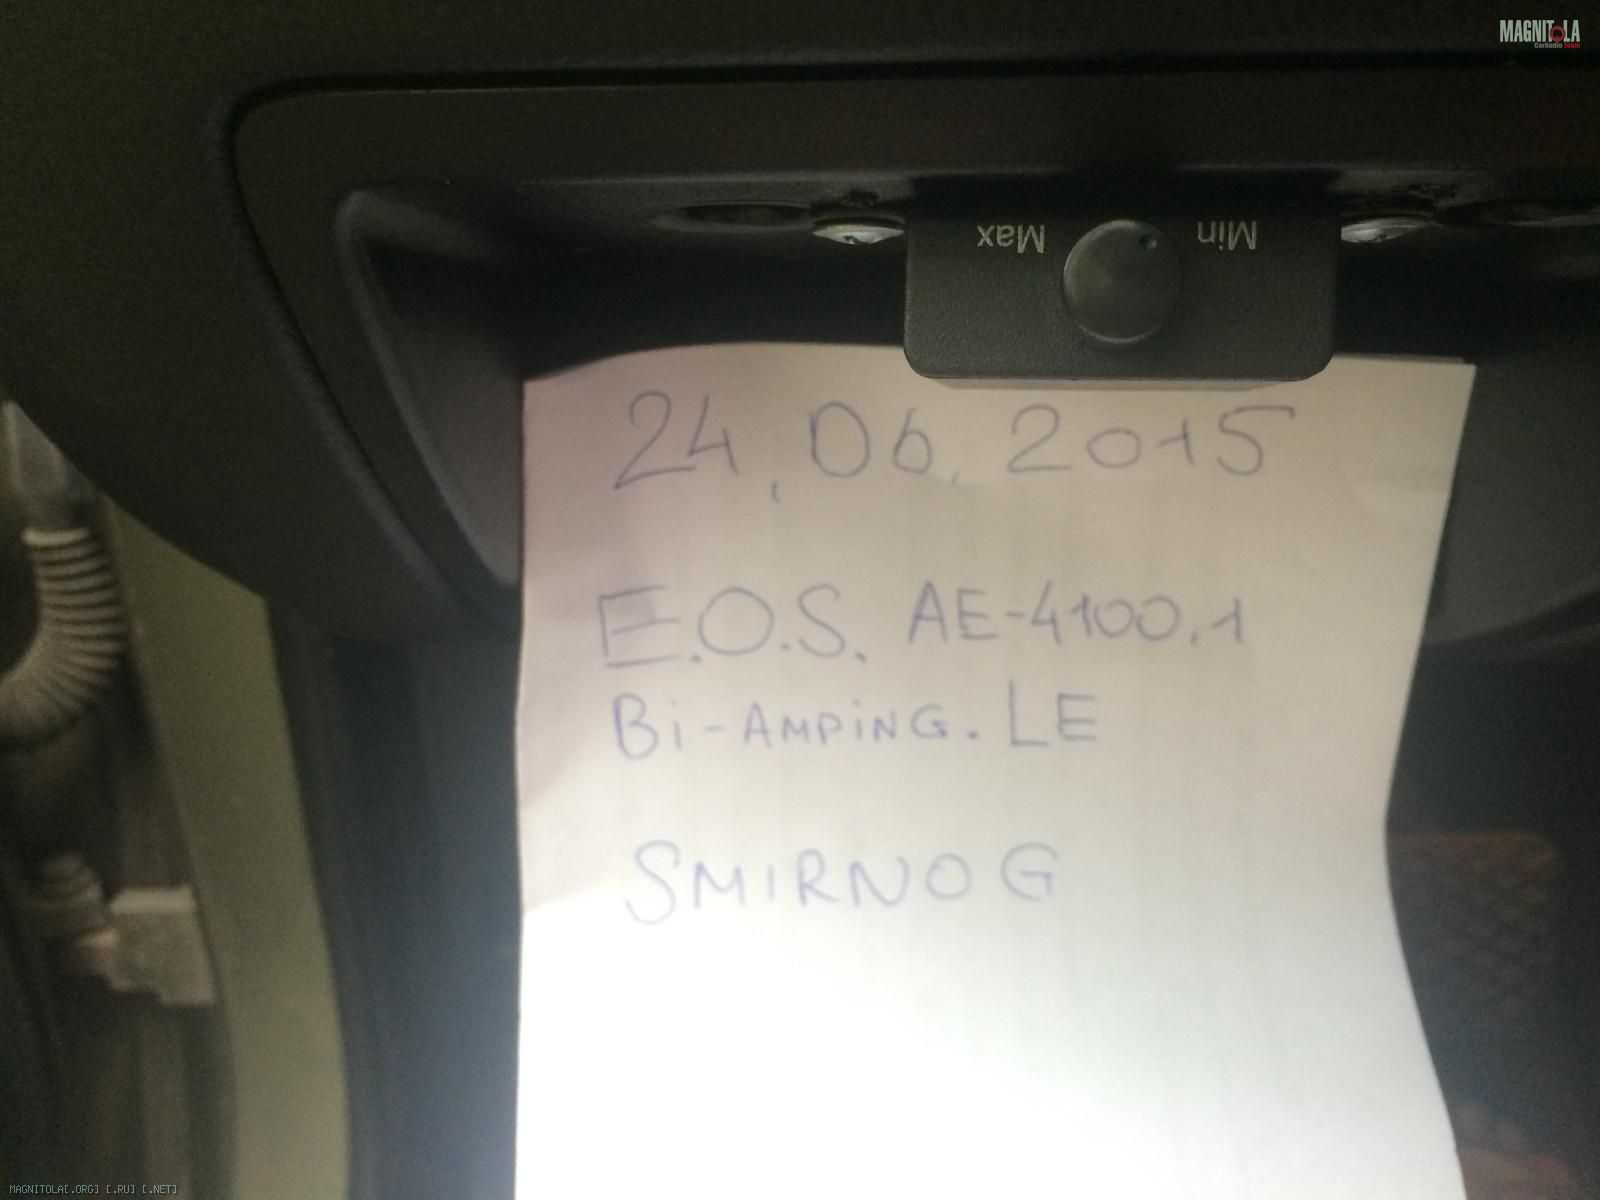 MAGNITOLA
CarAudio Team
Max Min
24.06.2015
E.O.S. AE-4100.1
Bi-AMPiNG. LE
SMIRNOG
MAGNITOLA[.ORG] [.RU] [.NET]